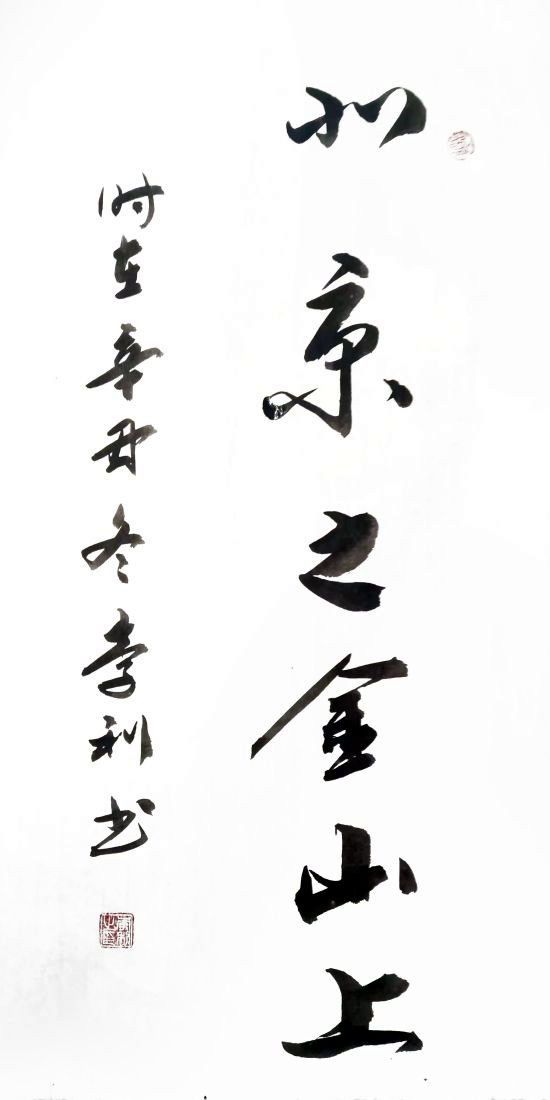 北京之金山上
时在辛丑冬李利书